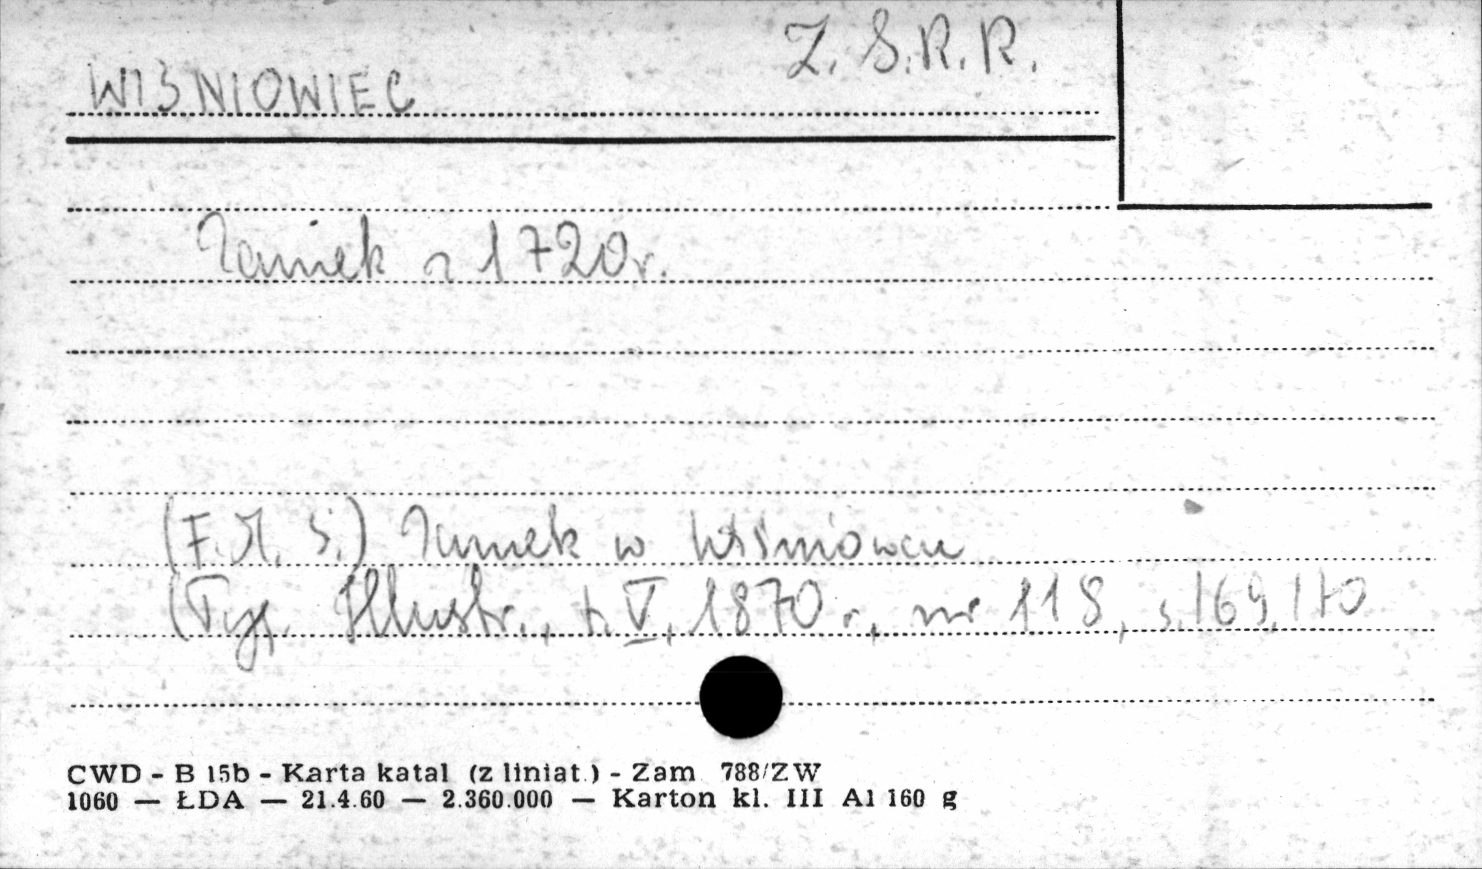 Z.S.R.R.
WIŚNIOWIEC
Zamek z 1720r.
(F.M.S.) Zamek w Wiśniowcu
(Tyg. Illustr., t. V, 1870 r., nr 118, s. 169,170
CWD - B 15b - Karta katal (z liniat.) - Zam 788/ZW
1060 — ŁDA — 21.4.60 — 2.360.000 — Karton kl. III A1 160 g